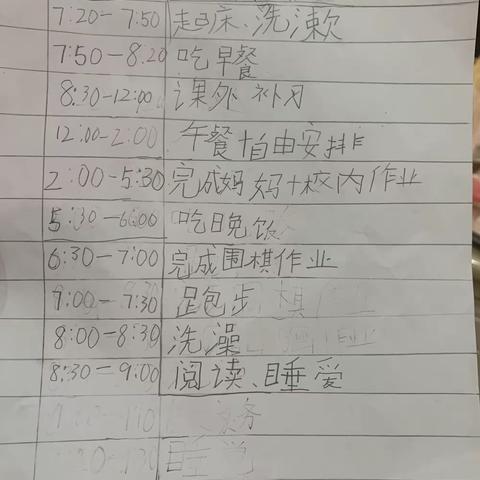 7:20-7:50 起床、洗漱
7:50-8:20 吃早餐
8:30-12:00 课外补习
12:00-2:00 午餐+自由安排
2:00-5:30 完成妈妈+校内作业
5:30-6:00 吃晚饭
6:30-7:00 完成围棋作业
7:00-7:30 跑步
8:00-8:30 洗澡
8:30-9:00 阅读、睡爱